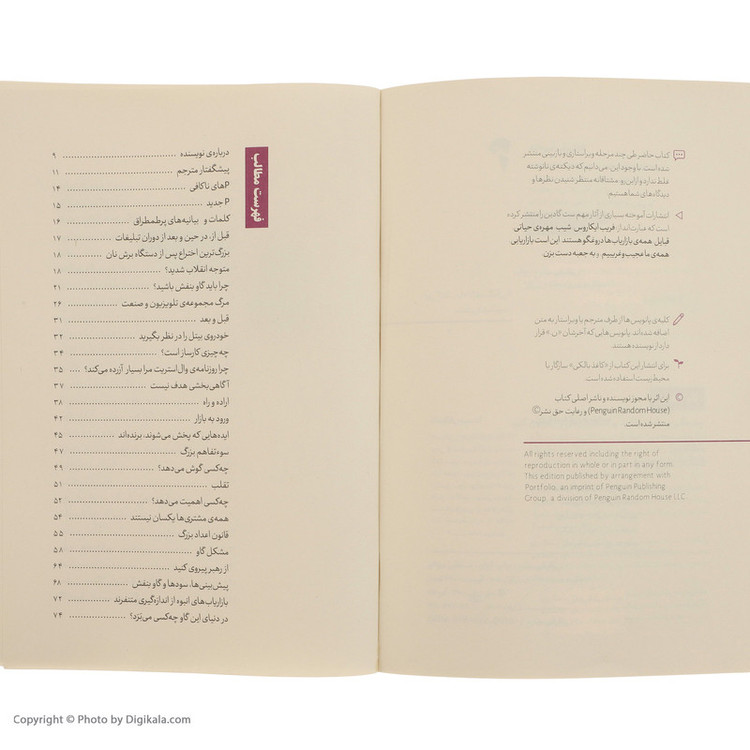 کتاب حاضر طی چند مرحله ویراستاری و بازبینی منتشر
شده است. با وجود این، می‌دانیم که دیکته‌ی نانوشته
غلط ندارد و ازاین‌رو، مشتاقانه منتظر شنیدن نظرها و
دیدگاه‌های شما هستیم.
انتشارات آموخته بسیاری از آثار مهم ست گادین را منتشر کرده
است که عبارت‌اند از: فریب ایکاروس، شیب، مهره‌ی حیاتی،
قبایل، همه‌ی بازاریاب‌ها دروغگو هستند، این است بازاریابی،
همه‌ی ما عجیب‌وغریبیم و به جعبه دست بزن.
کلیه‌ی پانویس‌ها از طرف مترجم یا ویراستار به متن
اضافه شده‌اند. پانویس‌هایی که آخرشان «ن.» قرار
دارد از نویسنده هستند.
برای انتشار این کتاب از «کاغذ بالکی» سازگار با
محیط‌زیست استفاده شده است.
© این اثر با مجوز نویسنده و ناشر اصلی کتاب
(Penguin Random House) و رعایت حق نشر©
منتشر شده است.
All rights reserved including the right of
reproduction in whole or in part in any form.
This edition published by arrangement with
Portfolio, an imprint of Penguin Publishing
Group, a division of Penguin Random House LLC.
فهرست مطالب
درباره‌ی نویسنده ۹
پیشگفتار مترجم ۱۱
Pهای ناکافی ۱۴
P جدید ۱۵
کلمات و بیانیه‌های پرطمطراق ۱۶
قبل از، در حین و بعد از دوران تبلیغات ۱۷
بزرگ‌ترین اختراع پس از دستگاه برش نان ۱۸
متوجه انقلاب شدید؟ ۱۸
چرا باید گاو بنفش باشید؟ ۲۱
مرگ مجموعه‌ی تلویزیون و صنعت ۲۶
قبل و بعد ۳۱
خودروی بیتل را در نظر بگیرید ۳۲
چه‌چیزی کارساز است؟ ۳۴
چرا روزنامه‌ی وال‌استریت مرا بسیار آزرده می‌کند؟ ۳۵
آگاهی‌بخشی هدف نیست ۳۷
اراده و راه ۳۸
ورود به بازار ۴۲
ایده‌هایی که پخش می‌شوند، برنده‌اند ۴۵
سوءتفاهم بزرگ ۴۷
چه‌کسی گوش می‌دهد؟ ۴۹
تقلب ۵۱
چه‌کسی اهمیت می‌دهد؟ ۵۲
همه‌ی مشتری‌ها یکسان نیستند ۵۴
قانون اعداد بزرگ ۵۵
مشکل گاو ۵۸
از رهبر پیروی کنید ۶۴
پیش‌بینی‌ها، سودها و گاو بنفش ۶۸
بازاریاب‌های انبوه از اندازه‌گیری متنفرند ۷۲
در دنیای این گاو چه‌کسی می‌بَرَد؟ ۷۴
Copyright © Photo by Digikala.com